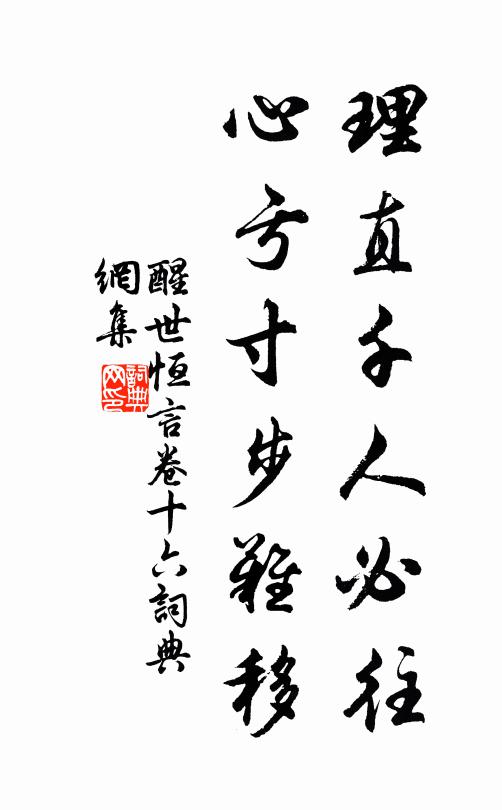 理直千人必往
心亏寸步難移
醒世恒言卷十六詞典
網集
詞典
网印